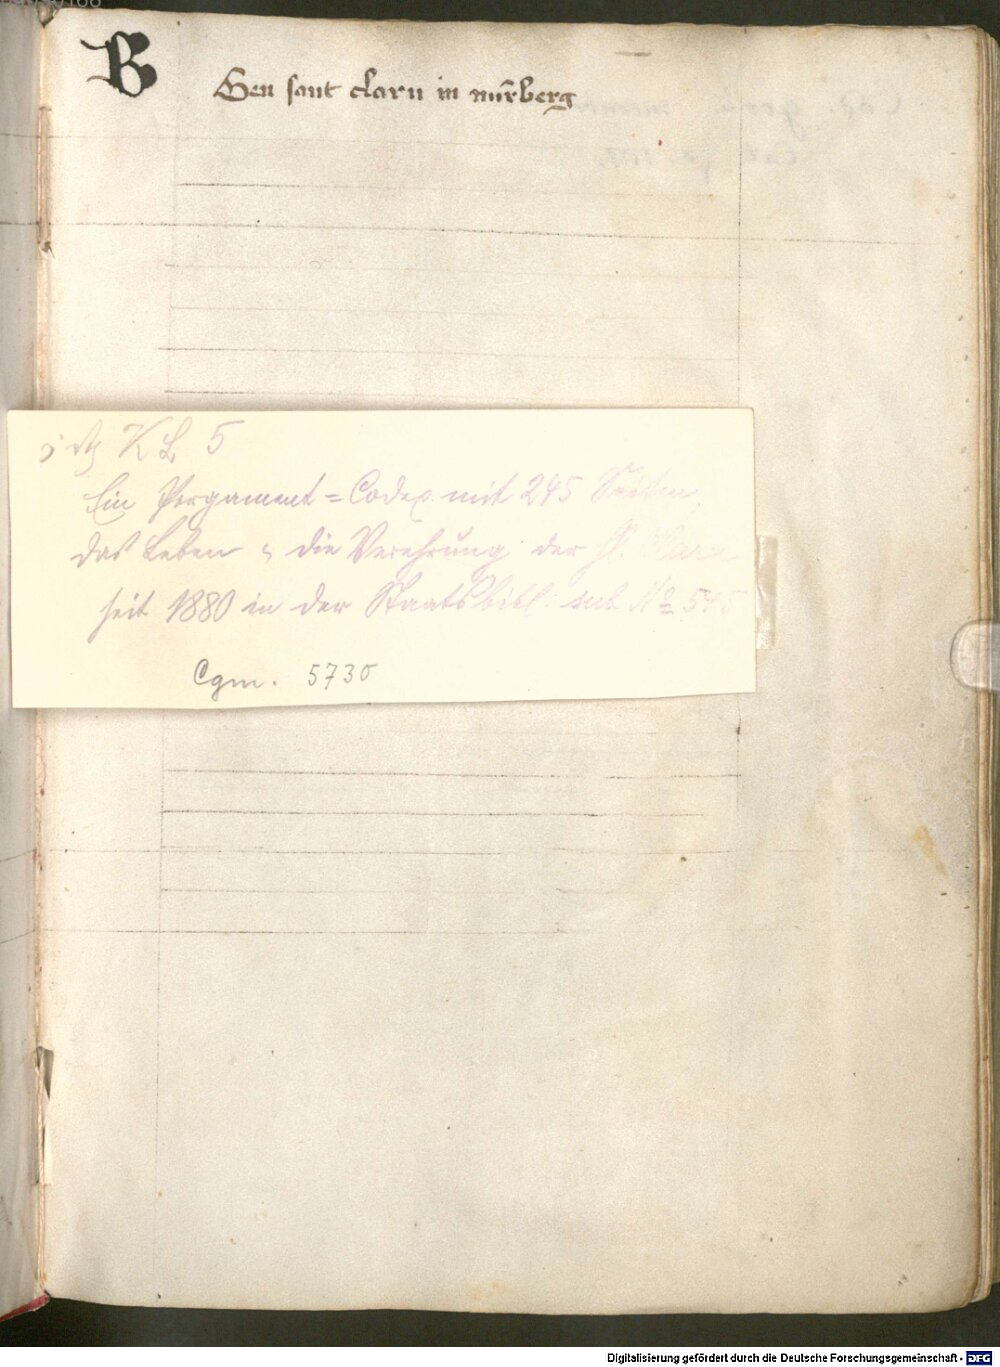 B
Gen sant clarn in nür̄berg
itz KL 5
Ein Pergament=Codex mit 245 Seiten
das Leben u. die Verehrung der hl. Clara
seit 1880 in der Staatsbibl: sub No 545
Cgm. 5730
Digitalisierung gefördert durch die Deutsche Forschungsgemeinschaft - DFG